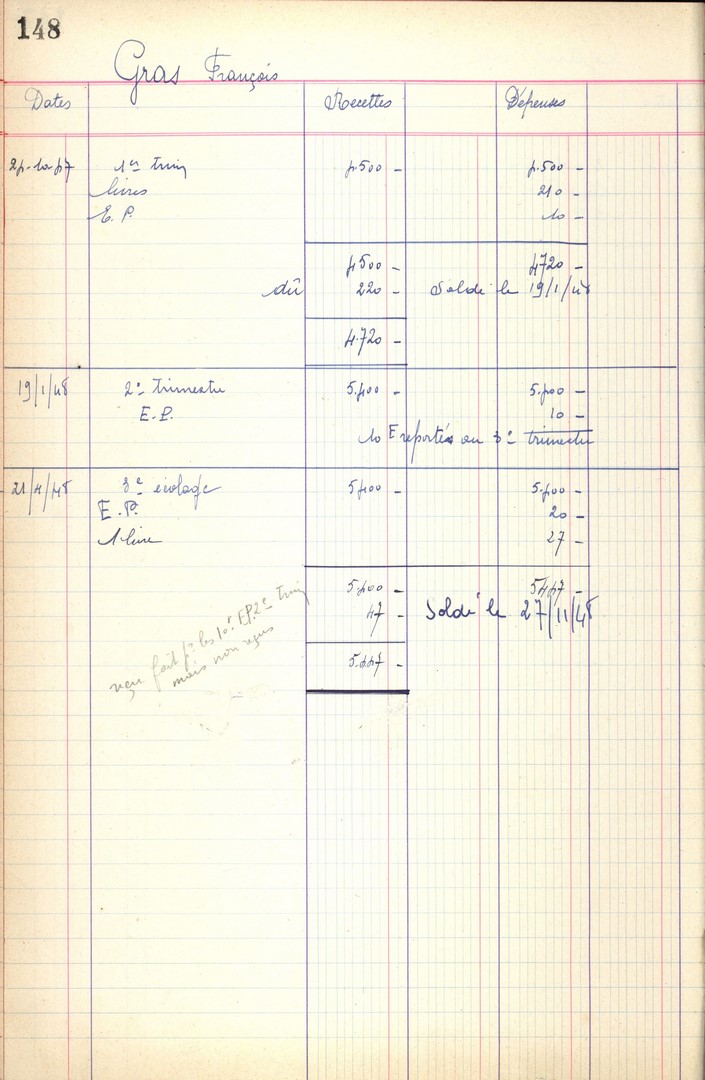 148
Gras François
Dates Recettes Dépenses
24-10-47 1er trim 4.500 - 4.500 -
livres 210 -
E.P. 10 -
4500 - 4720 -
dû 220 - Soldé le 19/1/48
4.720 -
19/1/48 2e trimestre 5.400 - 5.400 -
E.P. 10 -
10 F reportés au 3e trimestre
21/4/48 3e écolage 5400 - 5.400 -
E.P. 20 -
1 livre 27 -
5.400 - 5447 -
47 - Soldé le 27/11/48
5.447 -
reçu fait pr les 10F E.P. 2e trim
mais non reçus